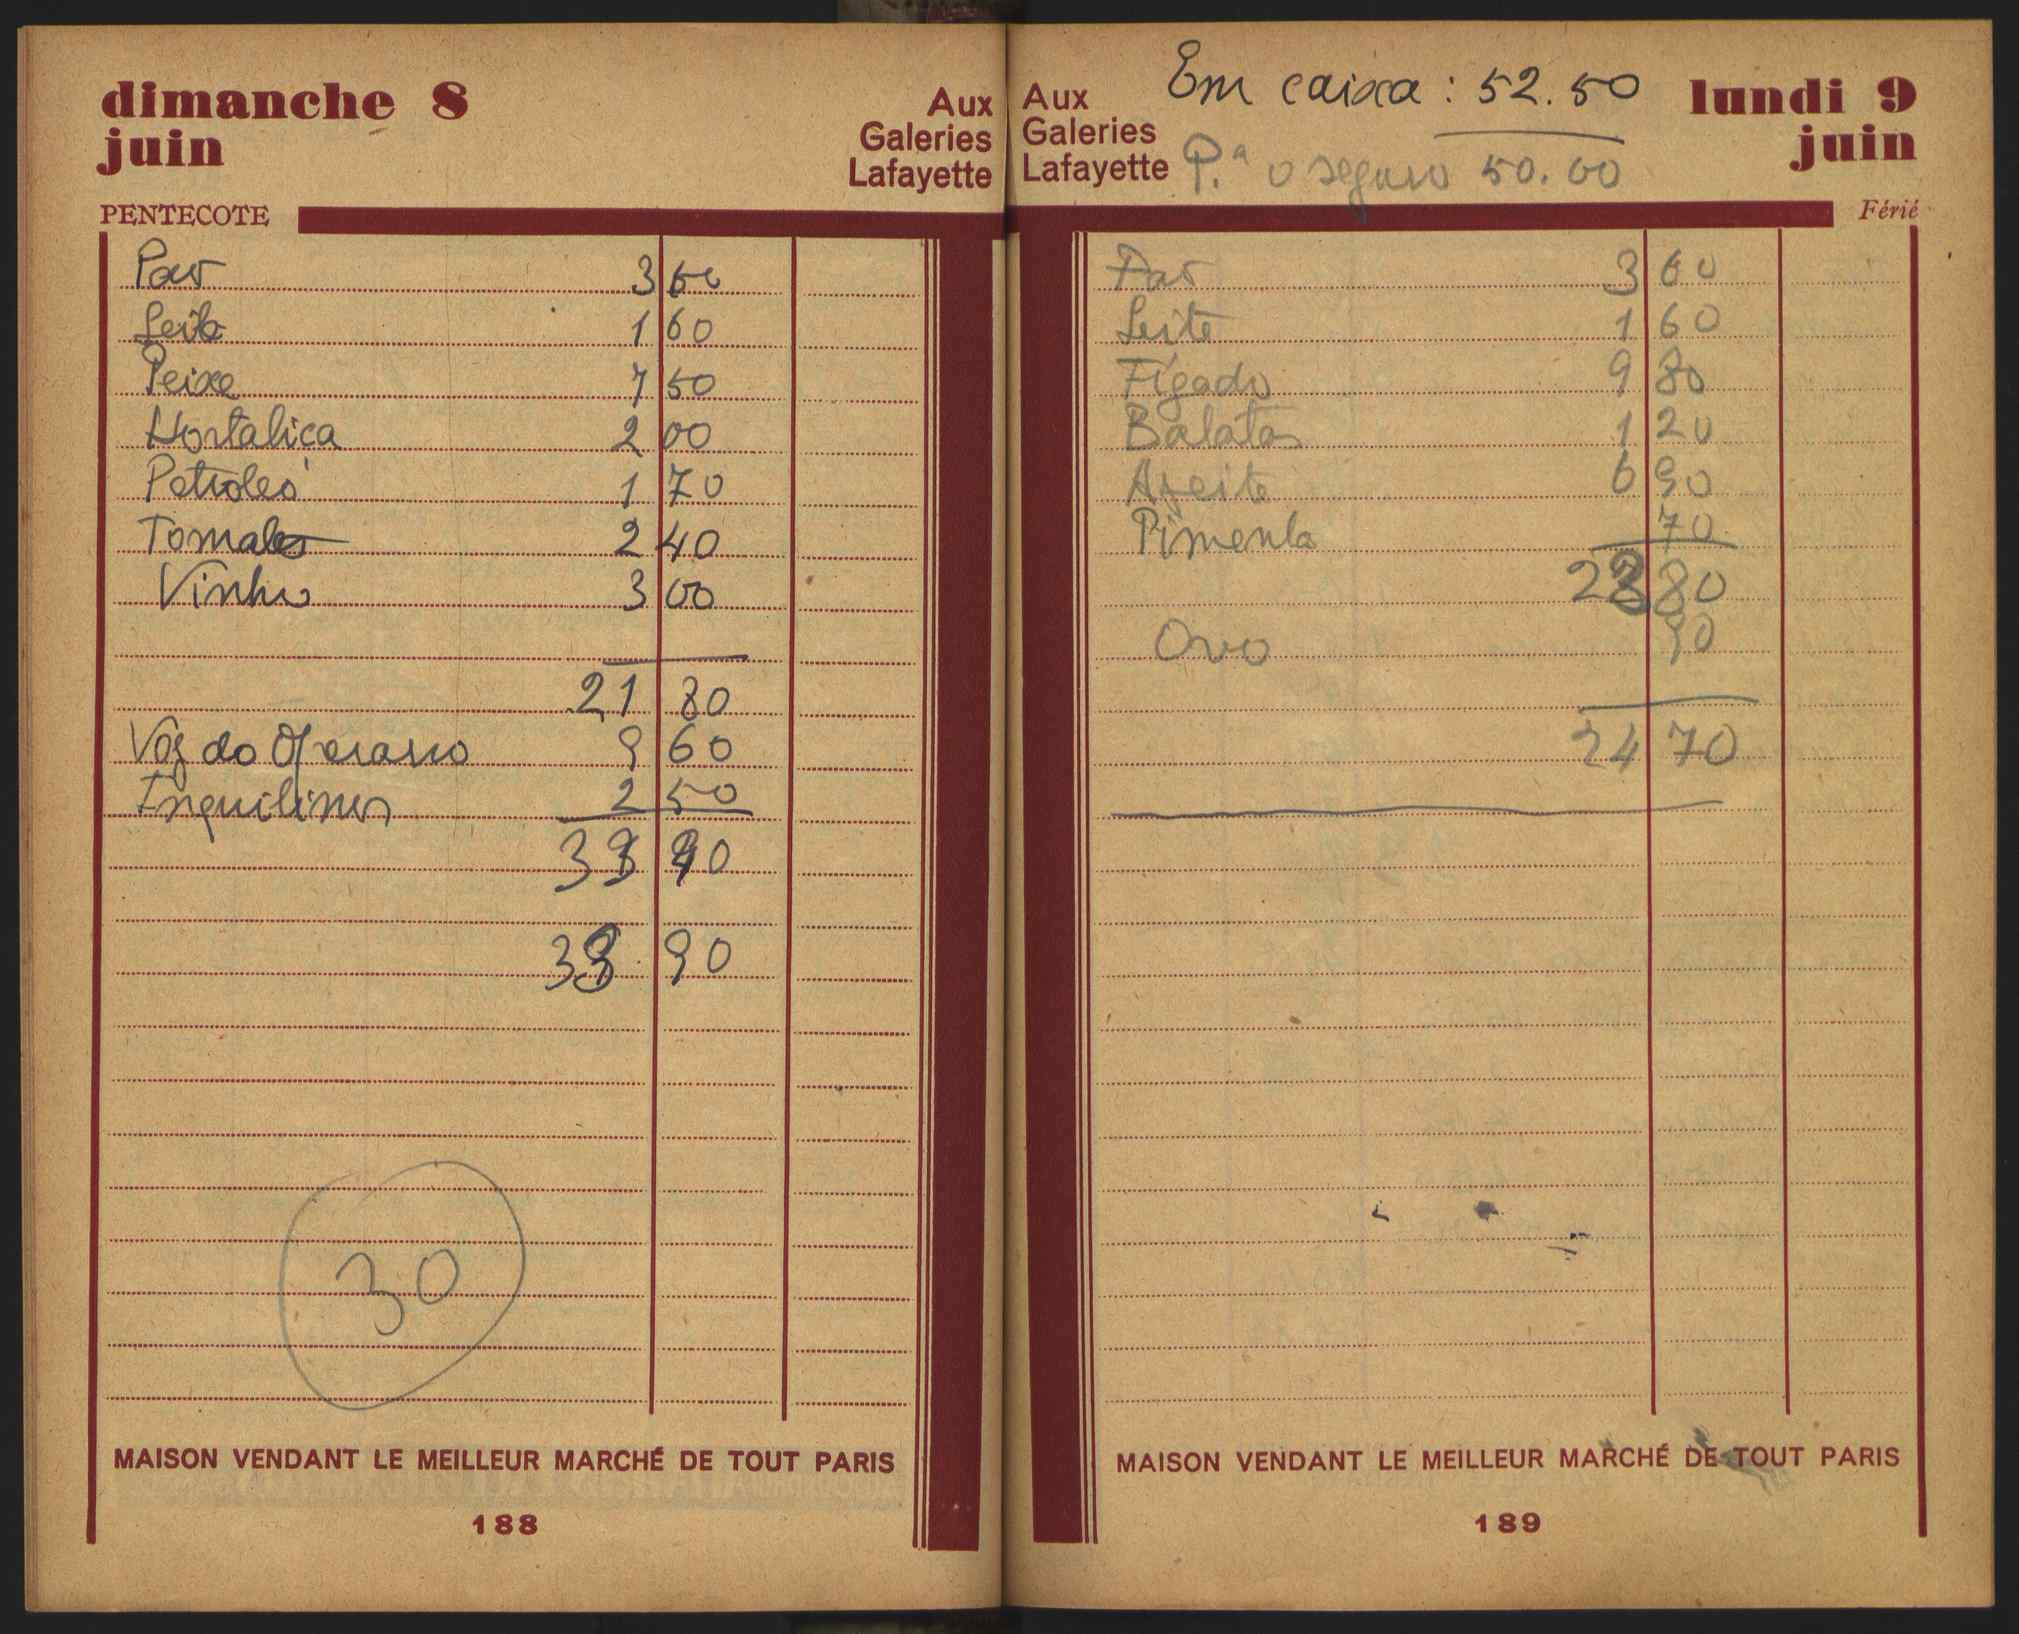 dimanche 8
juin
Aux
Galeries
Lafayette
PENTECOTE
Pão 3 60
Leite 1 60
Peixe 7 50
Hortaliça 2 00
Petróleo 1 70
Tomates 2 40
Vinho 3 00
21 80
Voz do Operario 9 60
Inquilinos 2 50
90
30
MAISON VENDANT LE MEILLEUR MARCHÉ DE TOUT PARIS
188
Em caixa: 52.50
Aux
Galeries
Lafayette
lundi 9
juin
P.ª o seguro 50.00
Férié
Pão 3 60
Leite 1 60
Fígado 9 80
Batatas 1 20
Azeite 6 90
Pimenta 70
23 80
Ovo 90
24 70
MAISON VENDANT LE MEILLEUR MARCHÉ DE TOUT PARIS
189